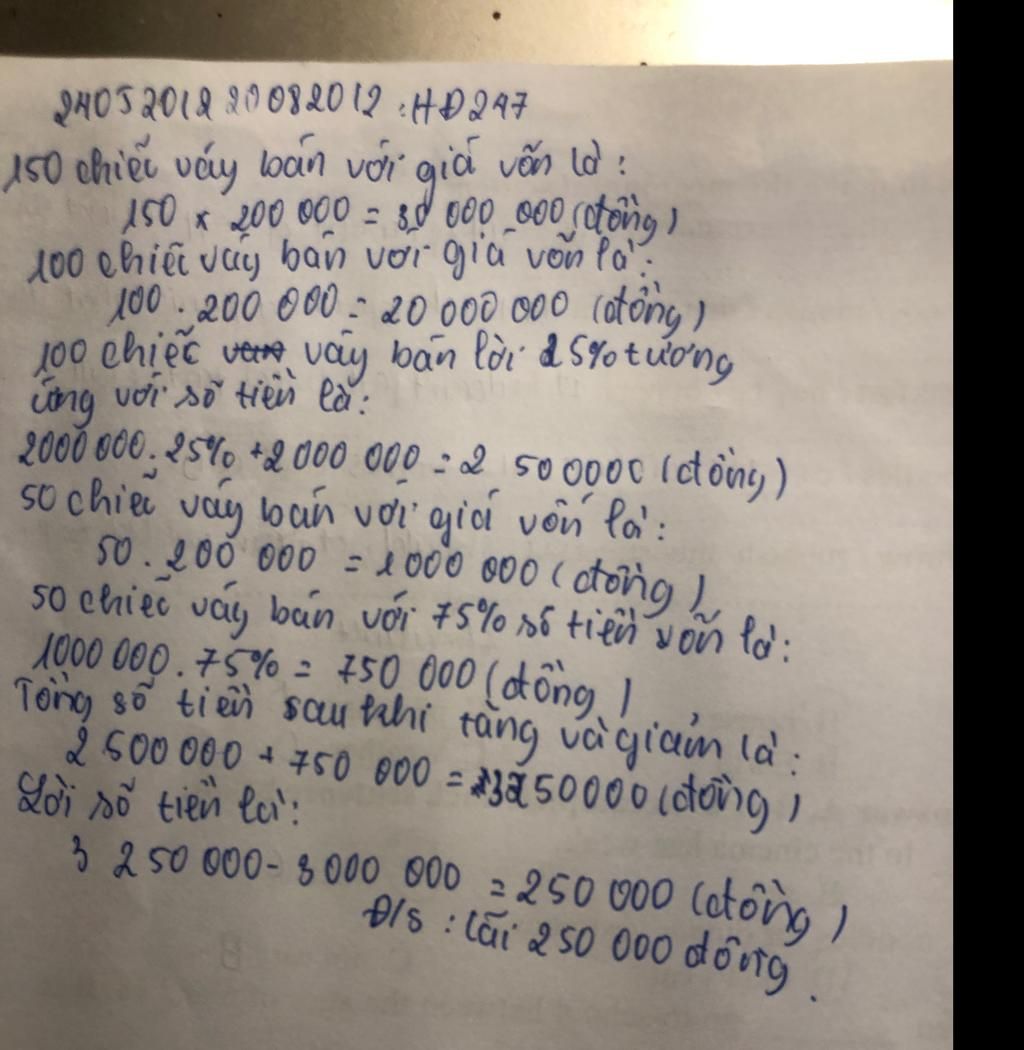 24052012 20082012 : HĐ247
150 chiếc váy bán với giá vốn là :
150 x 200 000 = 30 000 000 (đồng)
100 chiếc váy bán với giá vốn là :
100 . 200 000 = 20 000 000 (đồng)
100 chiếc váy bán lời 25% tương
ứng với số tiền là :
2000 000 . 25% + 2 000 000 = 2 500000 (đồng)
50 chiếc váy bán với giá vốn là :
50 . 200 000 = 1000 000 (đồng)
50 chiếc váy bán với 75% số tiền vốn là :
1000 000 . 75% = 750 000 (đồng)
Tổng số tiền sau khi tăng và giảm là :
2 500 000 + 750 000 = 3250000 (đồng)
Lời số tiền là :
3 250 000 - 3000 000 = 250 000 (đồng)
Đ/S : lãi 250 000 đồng .